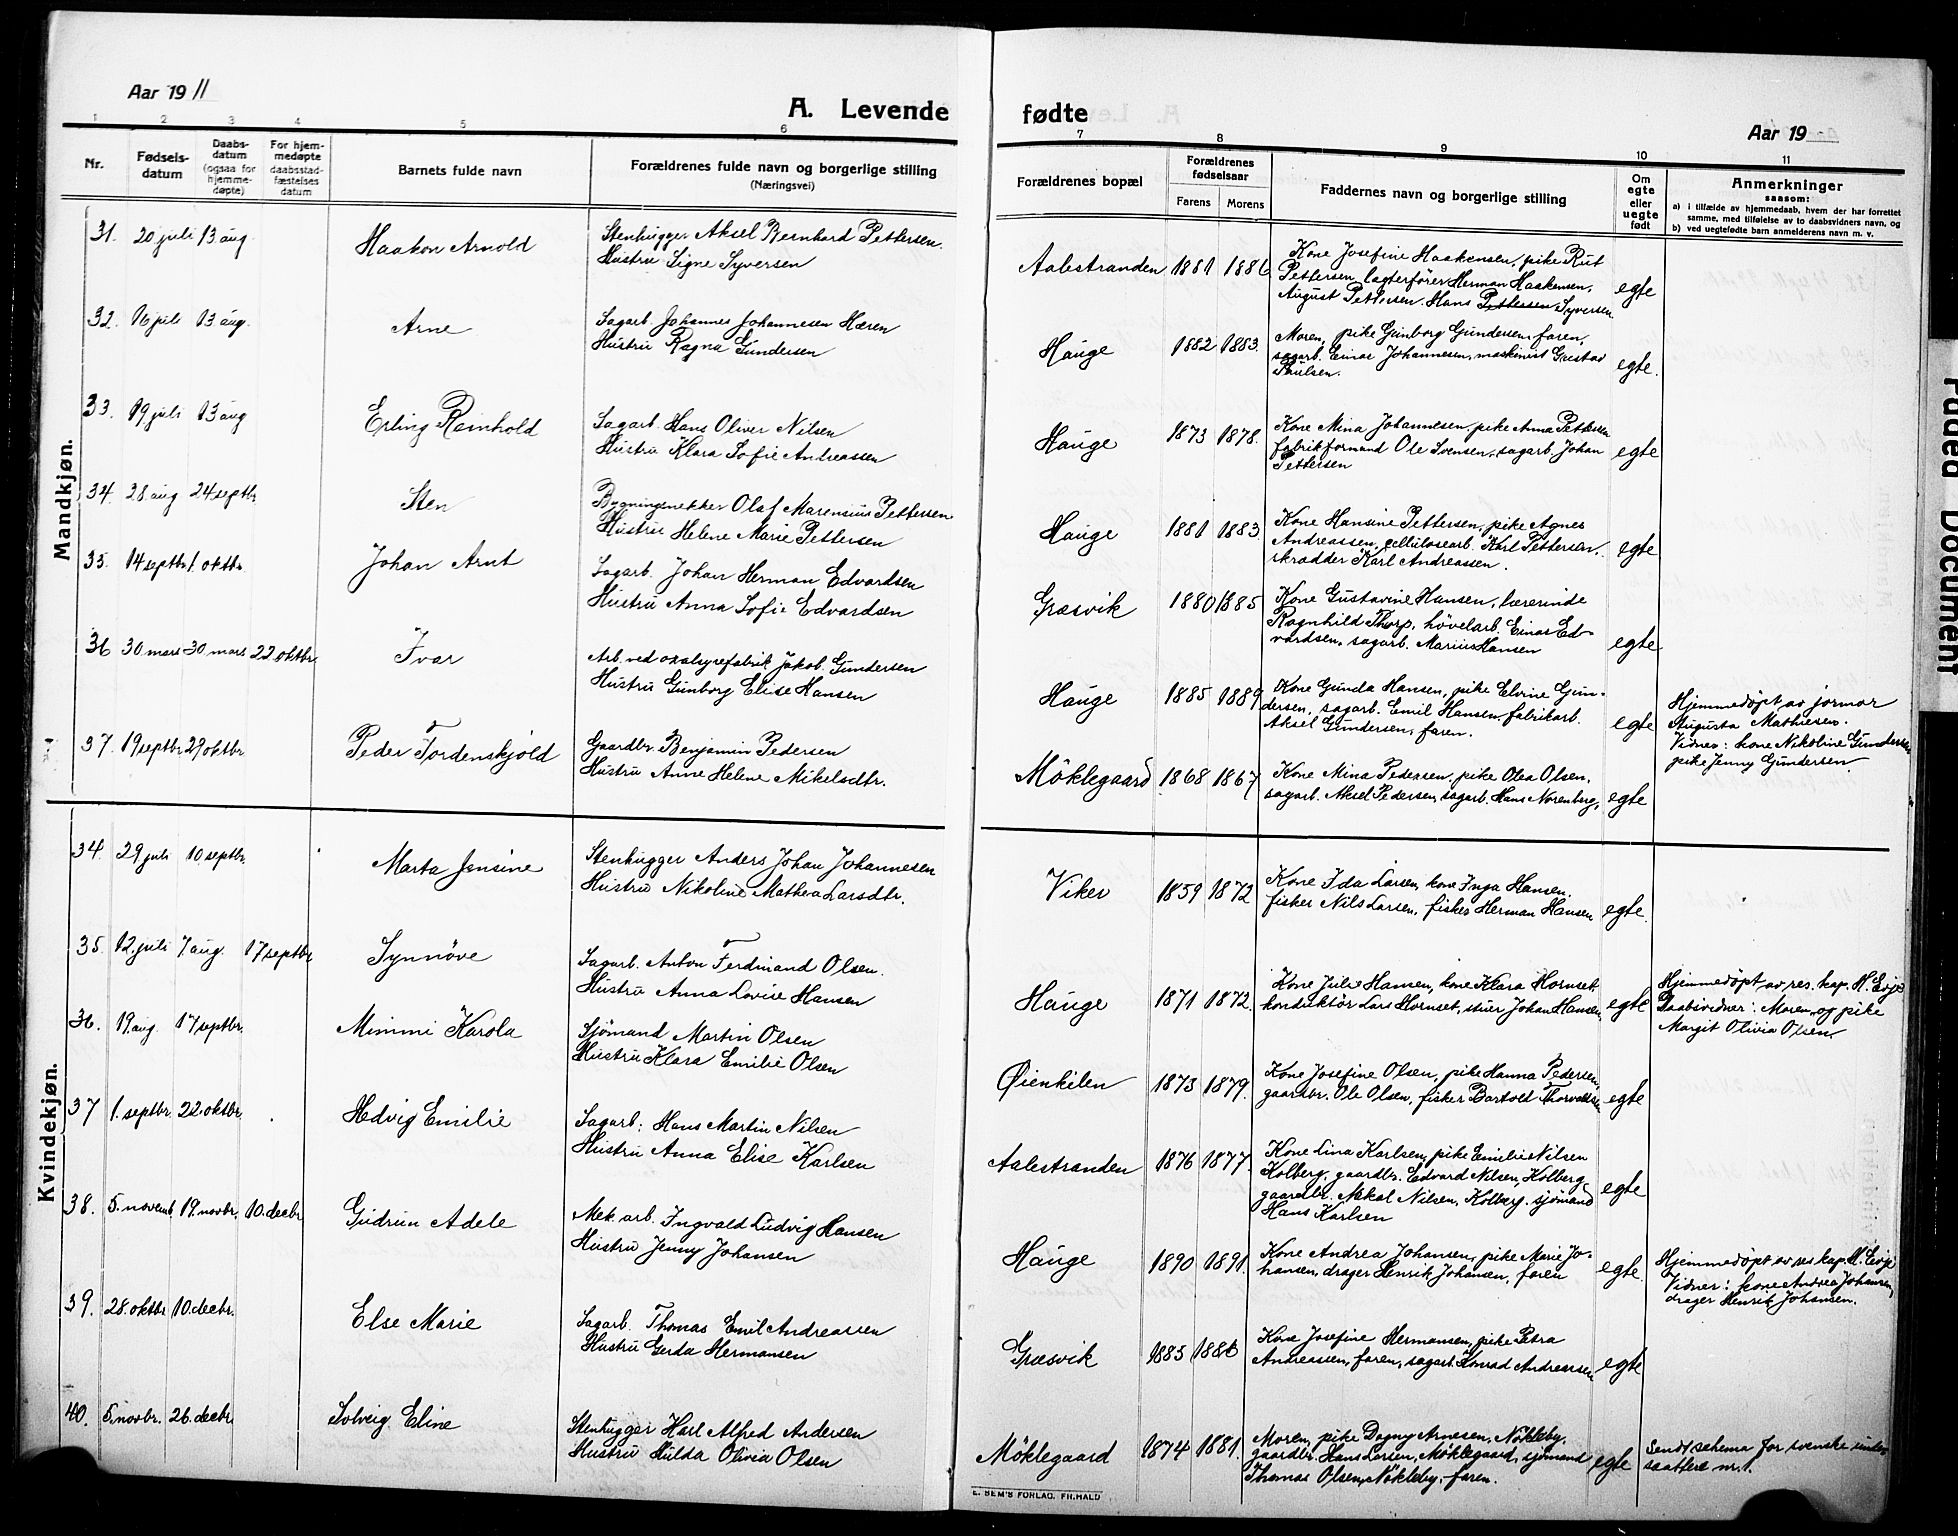 Aar 1911
A. Levende
fødte
Aar 19
1 2 3 4 5 6
7 8 9 10 11
Nr.
Fødsels-
datum
Daabs-
datum
(ogsaa for
hjemme-
døpte)
For hjem-
medøpte
daabsstad-
fæstelses
datum
Barnets fulde navn
Forældrenes fulde navn og borgerlige stilling
(Næringsvei)
Forældrenes bopæl
Forældrenes
fødselsaar
Farens Morens
Faddernes navn og borgerlige stilling
Om
egte
eller
uegte
født
Anmerkninger
saasom:
a) i tilfælde av hjemmedaab, hvem der har forrettet
samme, med tilføielse av to daabsvidners navn, og
b) ved uegtefødte barn anmelderens navn m. v.
Mandkjøn.
31. 20 juli 13 aug. Haakon Arnold
Stenhugger Aksel Bernhard Pettersen.
Hustru Signe Syversen
Aalestranden 1881 1886
Kone Josefine Haakensen, pike Rut
Pettersen, lagterfører Herman Haakensen,
August Pettersen, Hans Pettersen Syversen
egte
32. 16 juli 13 aug. Arne
Sagarb. Johannes Johannesen Hæren
Hustru Ragna Gundersen
Hauge 1882 1883.
Moren, pike Gunborg Gundersen, faren,
sagarb. Einar Johannesen, maskinist Gustav
Paulsen.
egte.
33. 19 juli 13 aug Erling Reinhold
Sagarb. Hans Oliver Nilsen
Hustru Klara Sofie Andreassen
Hauge 1873 1878.
Kone Mina Johannesen, pike Anna Pettersen
fabrikformand Ole Svensen, sagarb. Johan
Pettersen
egte
34. 28 aug 24 septbr. Sten
Bygningsnekker Olaf Marensius Pettersen
Hustru Helene Marie Pettersen
Hauge 1881 1883.
Kone Hansine Pettersen, pike Agnes
Andreassen, cellulosearb. Karl Pettersen,
skrædder Karl Andreassen.
egte
35. 14 septbr. 1. oktbr. Johan Arnt
Sagarb. Johan Herman Edvardsen
Hustru Anna Sofie Edvardsen
Græsvik 1880 1885
Kone Gustavine Hansen, lærerinde
Ragnhild Thorp, høvelarb. Einar Ed-
vardsen, sagarb. Marius Hansen
egte
36 30. mars 30. mars 22. oktbr. Ivar
Arb. ved oxalsyrefabrik Jakob Gundersen
Hustru Gunborg Elise Hansen
Hauge 1885 1889
Kone Gunda Hansen, pike Elvine Gun-
dersen, sagarb. Emil Hansen, fabrikarb.
Aksel Gundersen, faren.
egte
Hjemmedøpt av jormor
Augusta Mathiesen.
Vidner: kone Nikoline Gundersen
pike Jenny Gundersen.
37. 19 septbr. 29 oktbr. Peder Tordenskjold
Gaardbr. Benjamin Pedersen
Hustru Anne Helene Mikelsdtr.
Møklegaard 1868 1867
Kone Mina Pedersen, pike Olea Olsen,
sagarb. Aksel Pedersen, sagarb. Hans Norenberg,
egte
Kvindekjøn.
34. 29 juli 10. septbr. Marta Jensine
Stenhugger Anders Johan Johannesen
Hustru Nikoline Mathea Larsdtr.
Viker 1859 1872
Kone Ida Larsen, kone Inga Hansen,
fisker Nils Larsen, fisker Herman Hansen
egte.
35. 12 juli 7. aug. 17 septbr. Synnøve
Sagarb. Anton Ferdinand Olsen.
Hustru Anna Lovise Hansen
Hauge 1871 1872.
Kone Julie Hansen, kone Klara Hornset,
konduktør Lars Hornset, stuer Johan Hansen,
egte
Hjemmedøpt av res. kap. H. Evje
Daabsvidner: Moren, og pike
Margit Olivia Olsen.
36. 19. aug. 17 septbr. Mimmi Karola
Sjømand Martin Olsen
Hustru Klara Emilie Olsen
Øienkilen 1873 1879.
Kone Josefine Olsen, pike Hanna Pedersen,
gaardbr. Ole Olsen, fisker Bartold Thorvaldsen
egte
37 1. septbr. 22. oktbr. Hedvig Emilie
Sagarb. Hans Martin Nilsen
Hustru Anna Elise Karlsen
Aalestranden 1876 1877.
Kone Lina Karlsen, pike Emilie Nilsen
Kolberg, gaardbr. Edvard Nilsen, Kolberg,
gaardbr. Mekal Nilsen, Kolberg, sjømand
Hans Karlsen
egte
38. 5. novemb. 19. novbr. 10. decbr Gudrun Adele
Mek. arb. Ingvald Ludvig Hansen
Hustru Jenny Johansen
Hauge 1890 1891.
Kone Andrea Johansen, pike Marie Jo-
hansen, drager Henrik Johansen, faren
egte.
Hjemmedøpt av res kap. H. Evje
Vidner: kone Andrea Johansen,
drager Henrik Johansen.
39. 28. oktbr 10. decbr. Else Marie
Sagarb. Thomas Emil Andreassen
Hustru Gerda Hermansen
Græsvik 1885 1886
Kone Josefine Hermansen, pike Petra
Andreassen, faren, sagarb. Konrad Andreassen
egte
40. 5. novbr. 26. decbr. Solveig Eline
Stenhugger Karl Alfred Andersen
Hustru Hulda Olivia Olsen
Møklegaard 1874 1881.
Moren, pike Dagny Arnesen, Nøkleby,
gaardbr. Hans Larsen, Møklegaard, sjømand
Thomas Olsen, Nøkleby, faren.
egte
Sendt schema for svenske under-
saatter nr. 1.
E. SEM'S FORLAG, FR.HALD
Faded Document